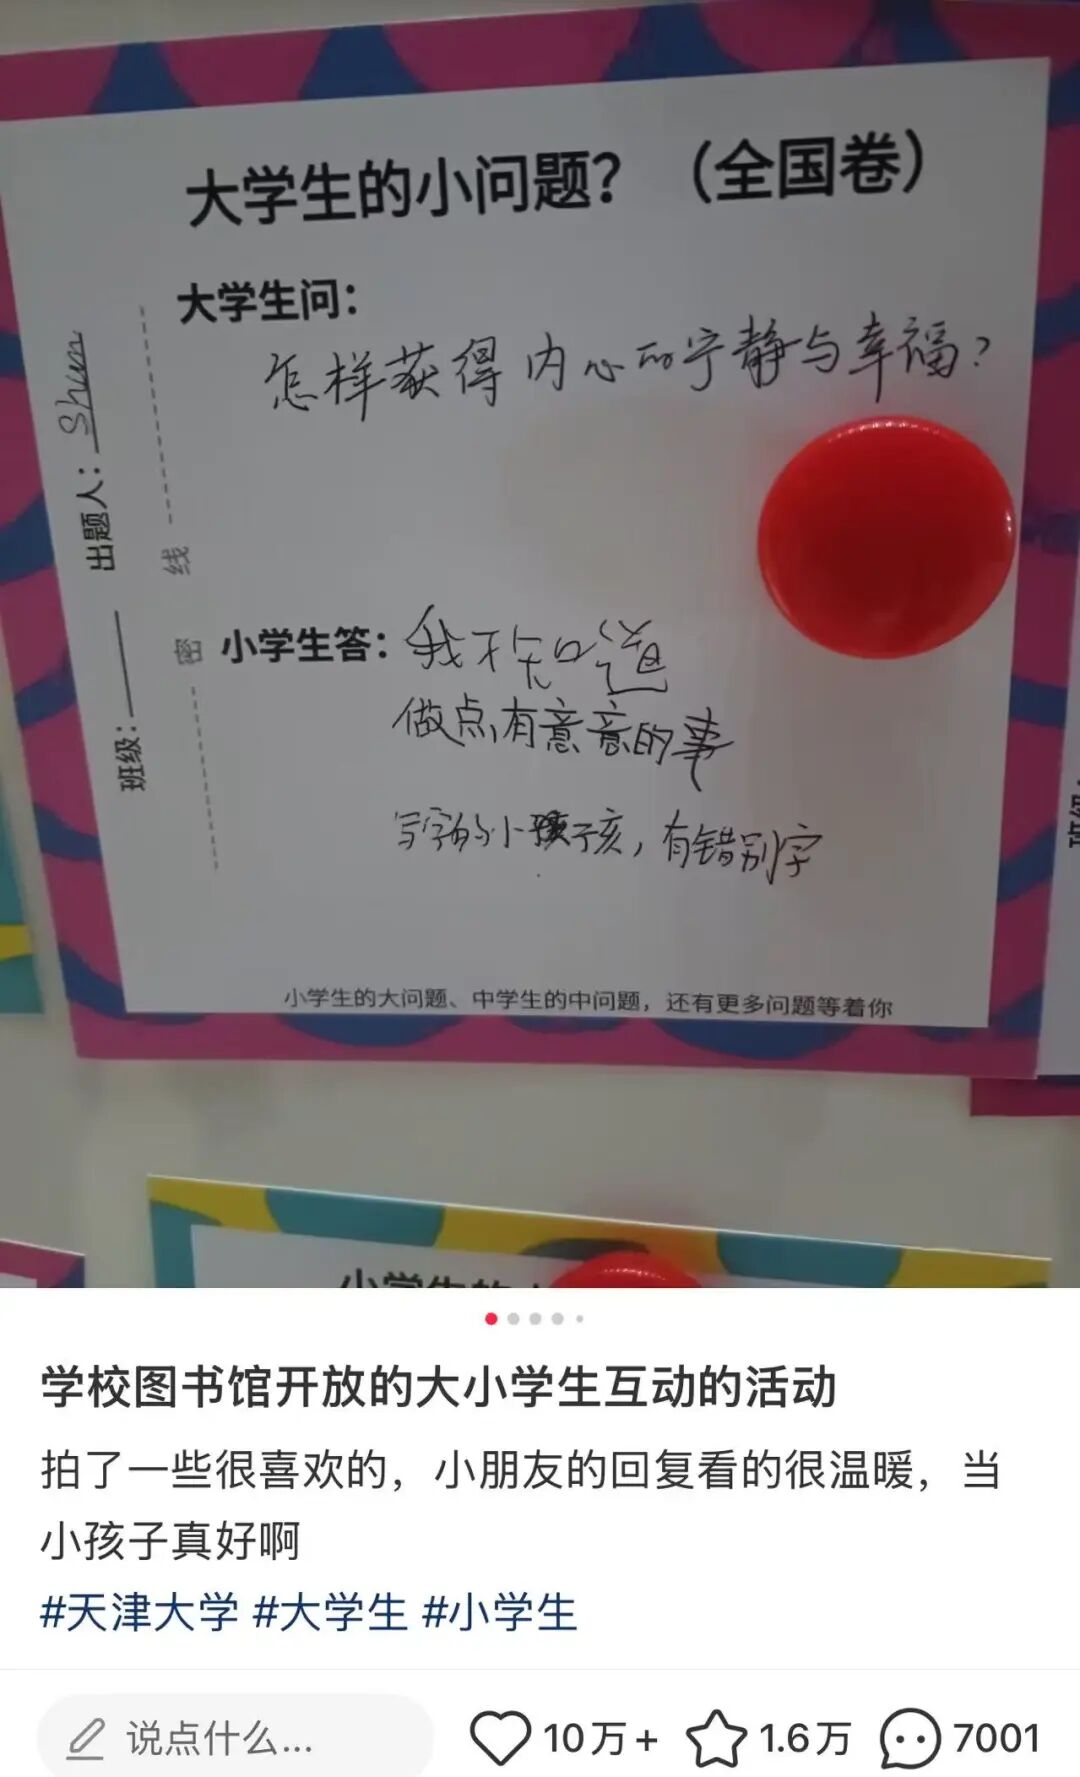 大学生的小问题？（全国卷）
大学生问：
怎样获得内心的宁静与幸福？
出题人：Shun
班级：
密
线
小学生答：我不知道
做点有意意的事
写字的小孩，有错别字
小学生的大问题、中学生的中问题，还有更多问题等着你
学校图书馆开放的大小学生互动的活动
拍了一些很喜欢的，小朋友的回复看的很温暖，当
小孩子真好啊
#天津大学 #大学生 #小学生
说点什么...
10万+
1.6万
7001